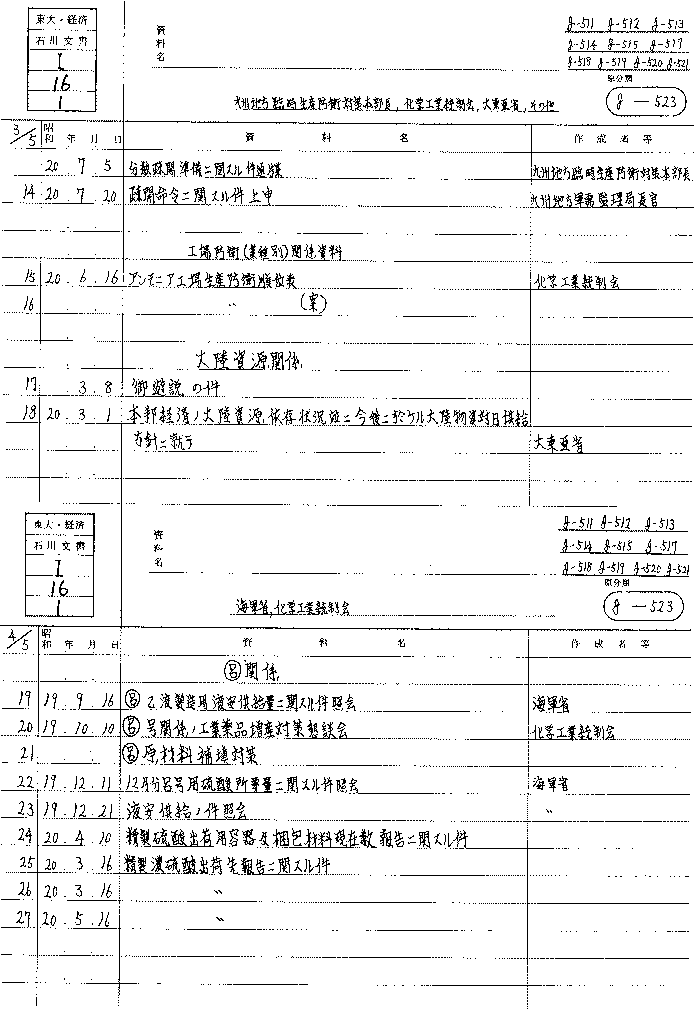 東大・経済
石川文書
I
16
1
資料名
九州地方臨時生産防衛対策本部長, 化学工業統制会, 大東亜省, その他
J-511 J-512 J-513
J-514 J-515 J-517
J-518 J-519 J-520 J-521
原分類
J-523
3/5 昭和 年 月 日 資料名 作成者等
20 7 5 分散疎開準備ニ関スル件通牒 九州地方臨時生産防衛対策本部長
14 20 7 20 疎開命令ニ関スル件上申 九州地方軍需監理局長官
工場防衛(業種別)関係資料
15 20 6 16 アンモニア工場生産防衛順位表 化学工業統制会
16 〃 (案)
大陸資源関係
17 3 8 御遊説の件
18 20 3 1 本邦経済ノ大陸資源依存状況並ニ今後ニ於ケル大陸物資対日供給
方針ニ就テ 大東亜省
東大・経済
石川文書
I
16
1
資料名
海軍省, 化学工業統制会
J-511 J-512 J-513
J-514 J-515 J-517
J-518 J-519 J-520 J-521
原分類
J-523
4/5 昭和 年 月 日 資料名 作成者等
㋺関係
19 19 9 16 ㋺乙液製造用液安供給量ニ関スル件照会 海軍省
20 19 10 10 ㋺号関係ノ工業薬品増産対策懇談会 化学工業統制会
21 ㋺原材料補填対策
22 19 12 11 12月分呂号用硫酸所要量ニ関スル件照会 海軍省
23 19 12 21 液安供給ノ件照会 〃
24 20 4 10 精製硫酸出荷用容器及梱包材料現在数報告ニ関スル件
25 20 3 16 精製濃硫酸出荷先報告ニ関スル件
26 20 3 16 〃
27 20 5 16 〃